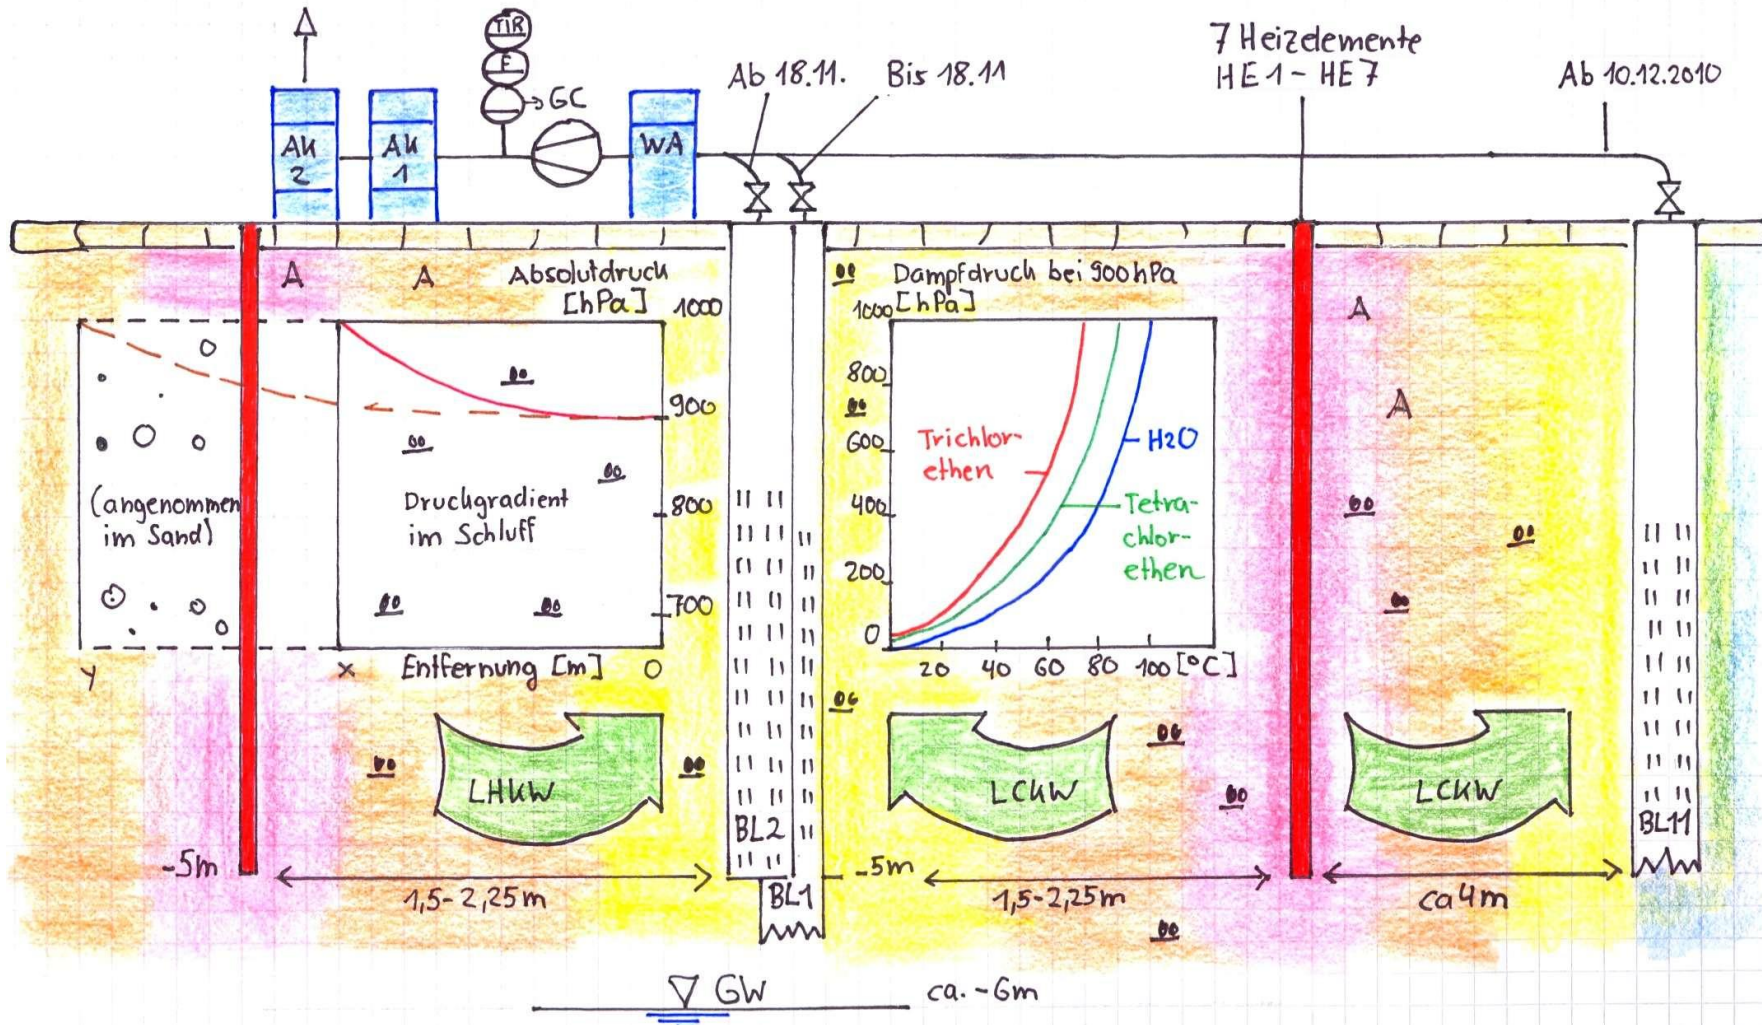 TIR
F
→GC
AK
2
AK
1
WA
Ab 18.11.
Bis 18.11
7 Heizelemente
HE1 - HE7
Ab 10.12.2010
A
A
Absolutdruck
[hPa]
1000
900
800
700
(angenommen
im Sand)
Druckgradient
im Schluff
y
x
Entfernung [m]
0
Dampfdruck bei 900hPa
[hPa]
1000
800
600
400
200
0
Trichlor-
ethen
H2O
Tetra-
chlor-
ethen
20 40 60 80 100 [°C]
A
A
LHKW
LCKW
LCKW
BL2
BL1
BL11
-5m
1,5-2,25m
-5m
1,5-2,25m
ca 4m
GW
ca. -6m